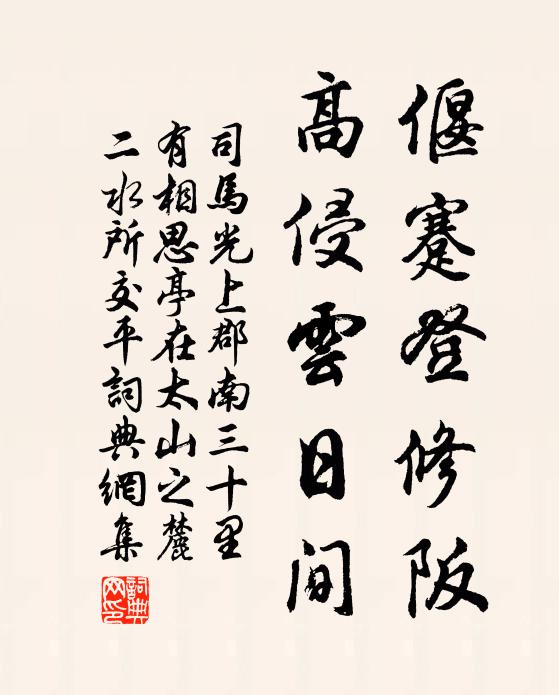 偃蹇登修阪
高侵雲日間
司馬光上郡南三十里
有相思亭在太山之麓
二水所交平詞典網集
詞典網印